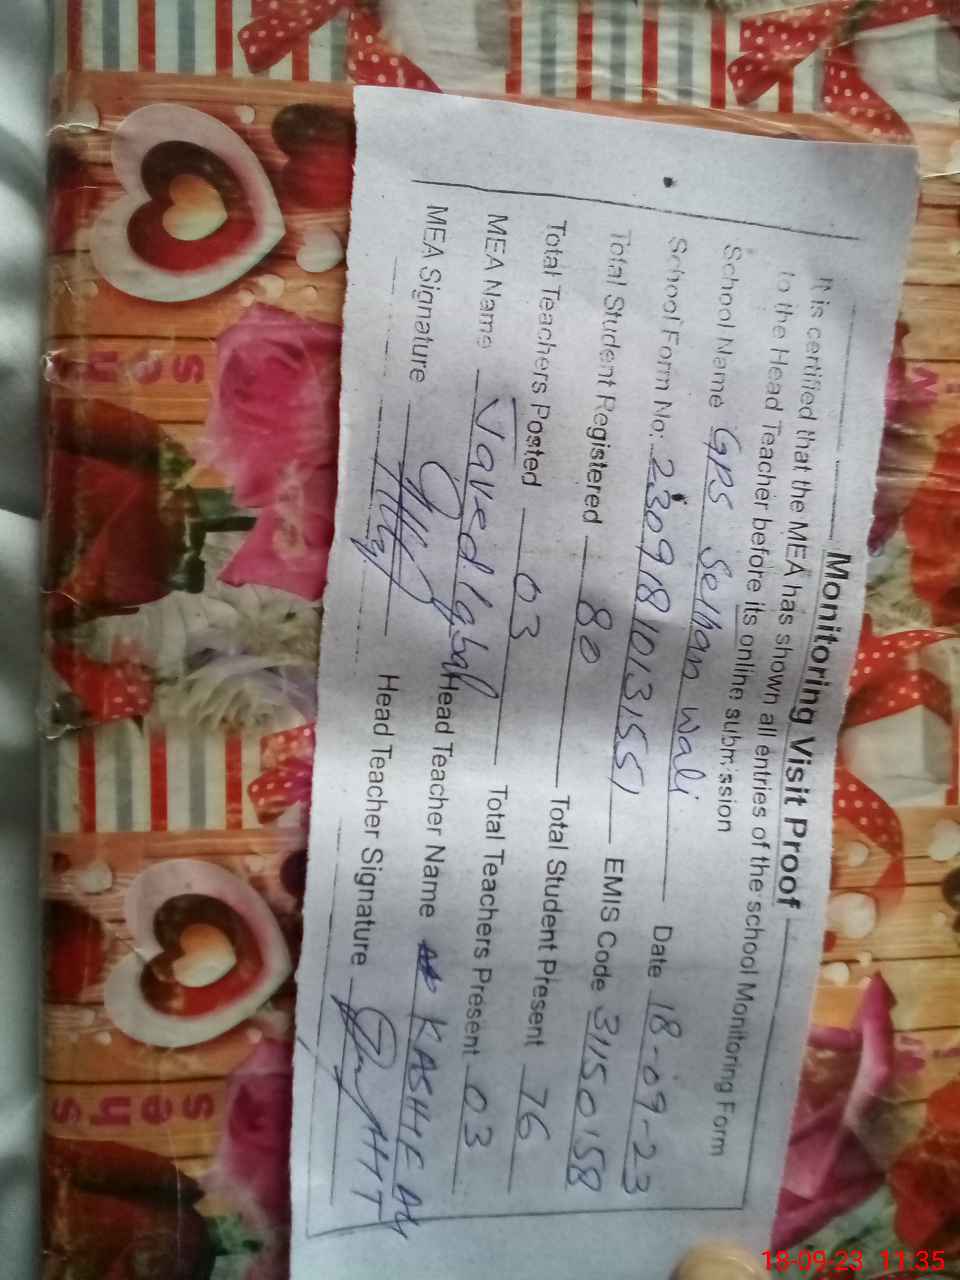 Monitoring Visit Proof
It is certified that the MEA has shown all entries of the school Monitoring Form
to the Head Teacher before its online submission
School Name GPS Selhan wali Date 18-09-23
School Form No: 2309181013155 EMIS Code 31150158
Total Student Registered 80 Total Student Present 76
Total Teachers Posted 03 Total Teachers Present 03
MEA Name Javed Iqbal Head Teacher Name KASHIF Ali
MEA Signature Head Teacher Signature
18-09-23 11:35